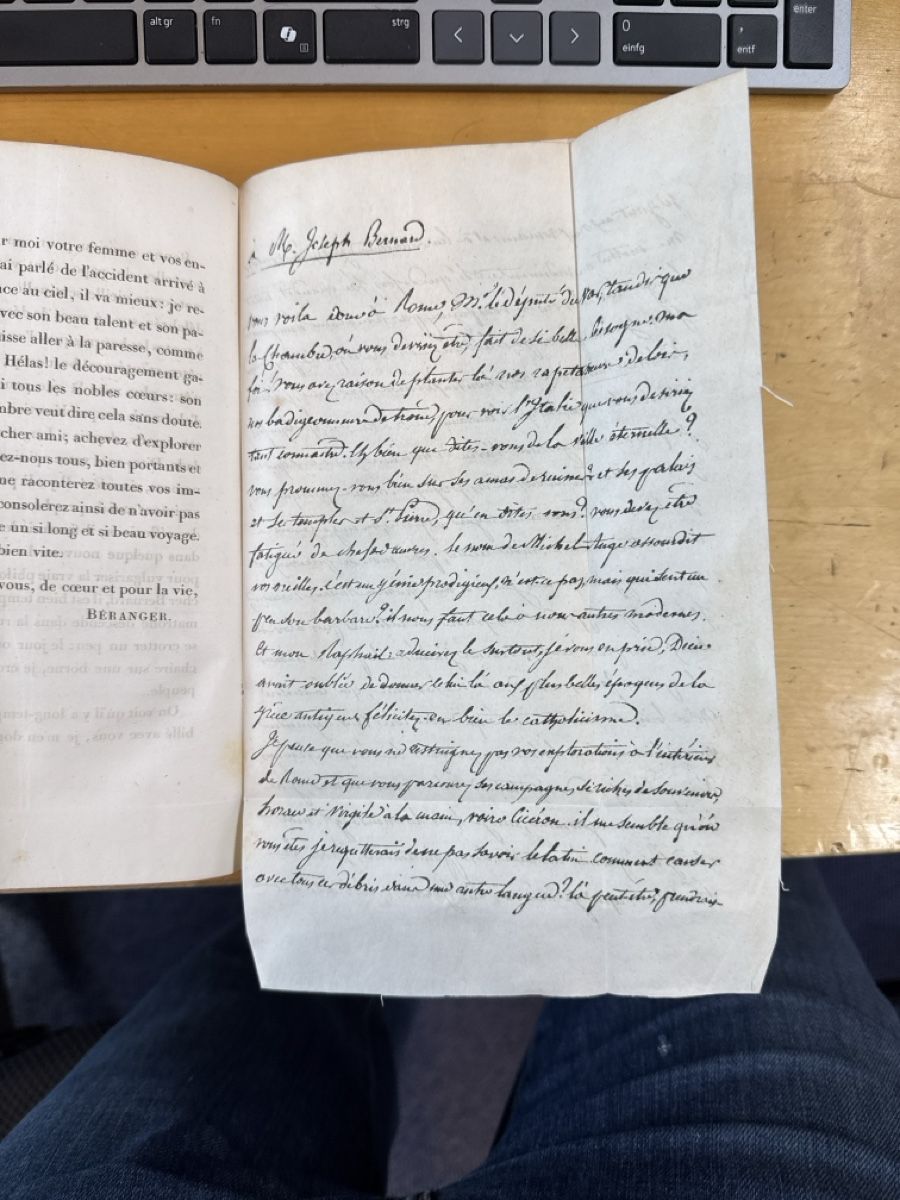 alt gr
fn
strg
0
einfg
,
entf
enter
r moi votre femme et vos en-
ai parlé de l'accident arrivé à
ce au ciel, il va mieux: je re-
vec son beau talent et son pa-
isse aller à la paresse, comme
Hélas! le découragement ga-
i tous les nobles cœurs: son
mbre veut dire cela sans doute.
cher ami; achevez d'explorer
ez-nous tous, bien portants et
ne raconterez toutes vos im-
consolerez ainsi de n'avoir pas
e un si long et si beau voyage.
bien vite.
vous, de cœur et pour la vie,
BÉRANGER.
à M. Joseph Bernard.
vous voila donc à Rome, Mr. le député du Var, tandis que
la Chambre, où vous devriez être, fait de si belle besogne. ma
foi! vous avez raison de planter là nos rapetasseurs de lois,
nos badigeonneurs de trône, pour voir l'Italie que vous desiriez
tant connaître. Eh bien que dites-vous de la ville éternelle?
vous promenez-vous bien sur ses amas de ruines? et ses palais
et ses temples et St. Pierre, qu'en dites vous? vous devez être
fatigué de chefs d'œuvres. le nom de Michel-Ange assourdit
vos oreilles. c'est un génie prodigieux, n'est-ce pas, mais qui sent un
peu son barbare? il nous faut cela à nous autres modernes.
Et mon Raphaël: admirez le surtout, je vous en prie; Dieu
avait oublié de donner celui là aux plus belles époques de la
Grèce antique; félicitez-en bien le catholicisme.
Je pense que vous ne restreignez pas vos explorations à l'intérieur
de Rome et que vous parcourez ses campagnes si riches de souvenirs,
horace et Virgile à la main, voire Cicéron. il me semble qu'où
vous êtes je regretterais de ne pas savoir le latin. comment causer
avec tous ces débris dans une autre langue? là peut-être, prendrais-